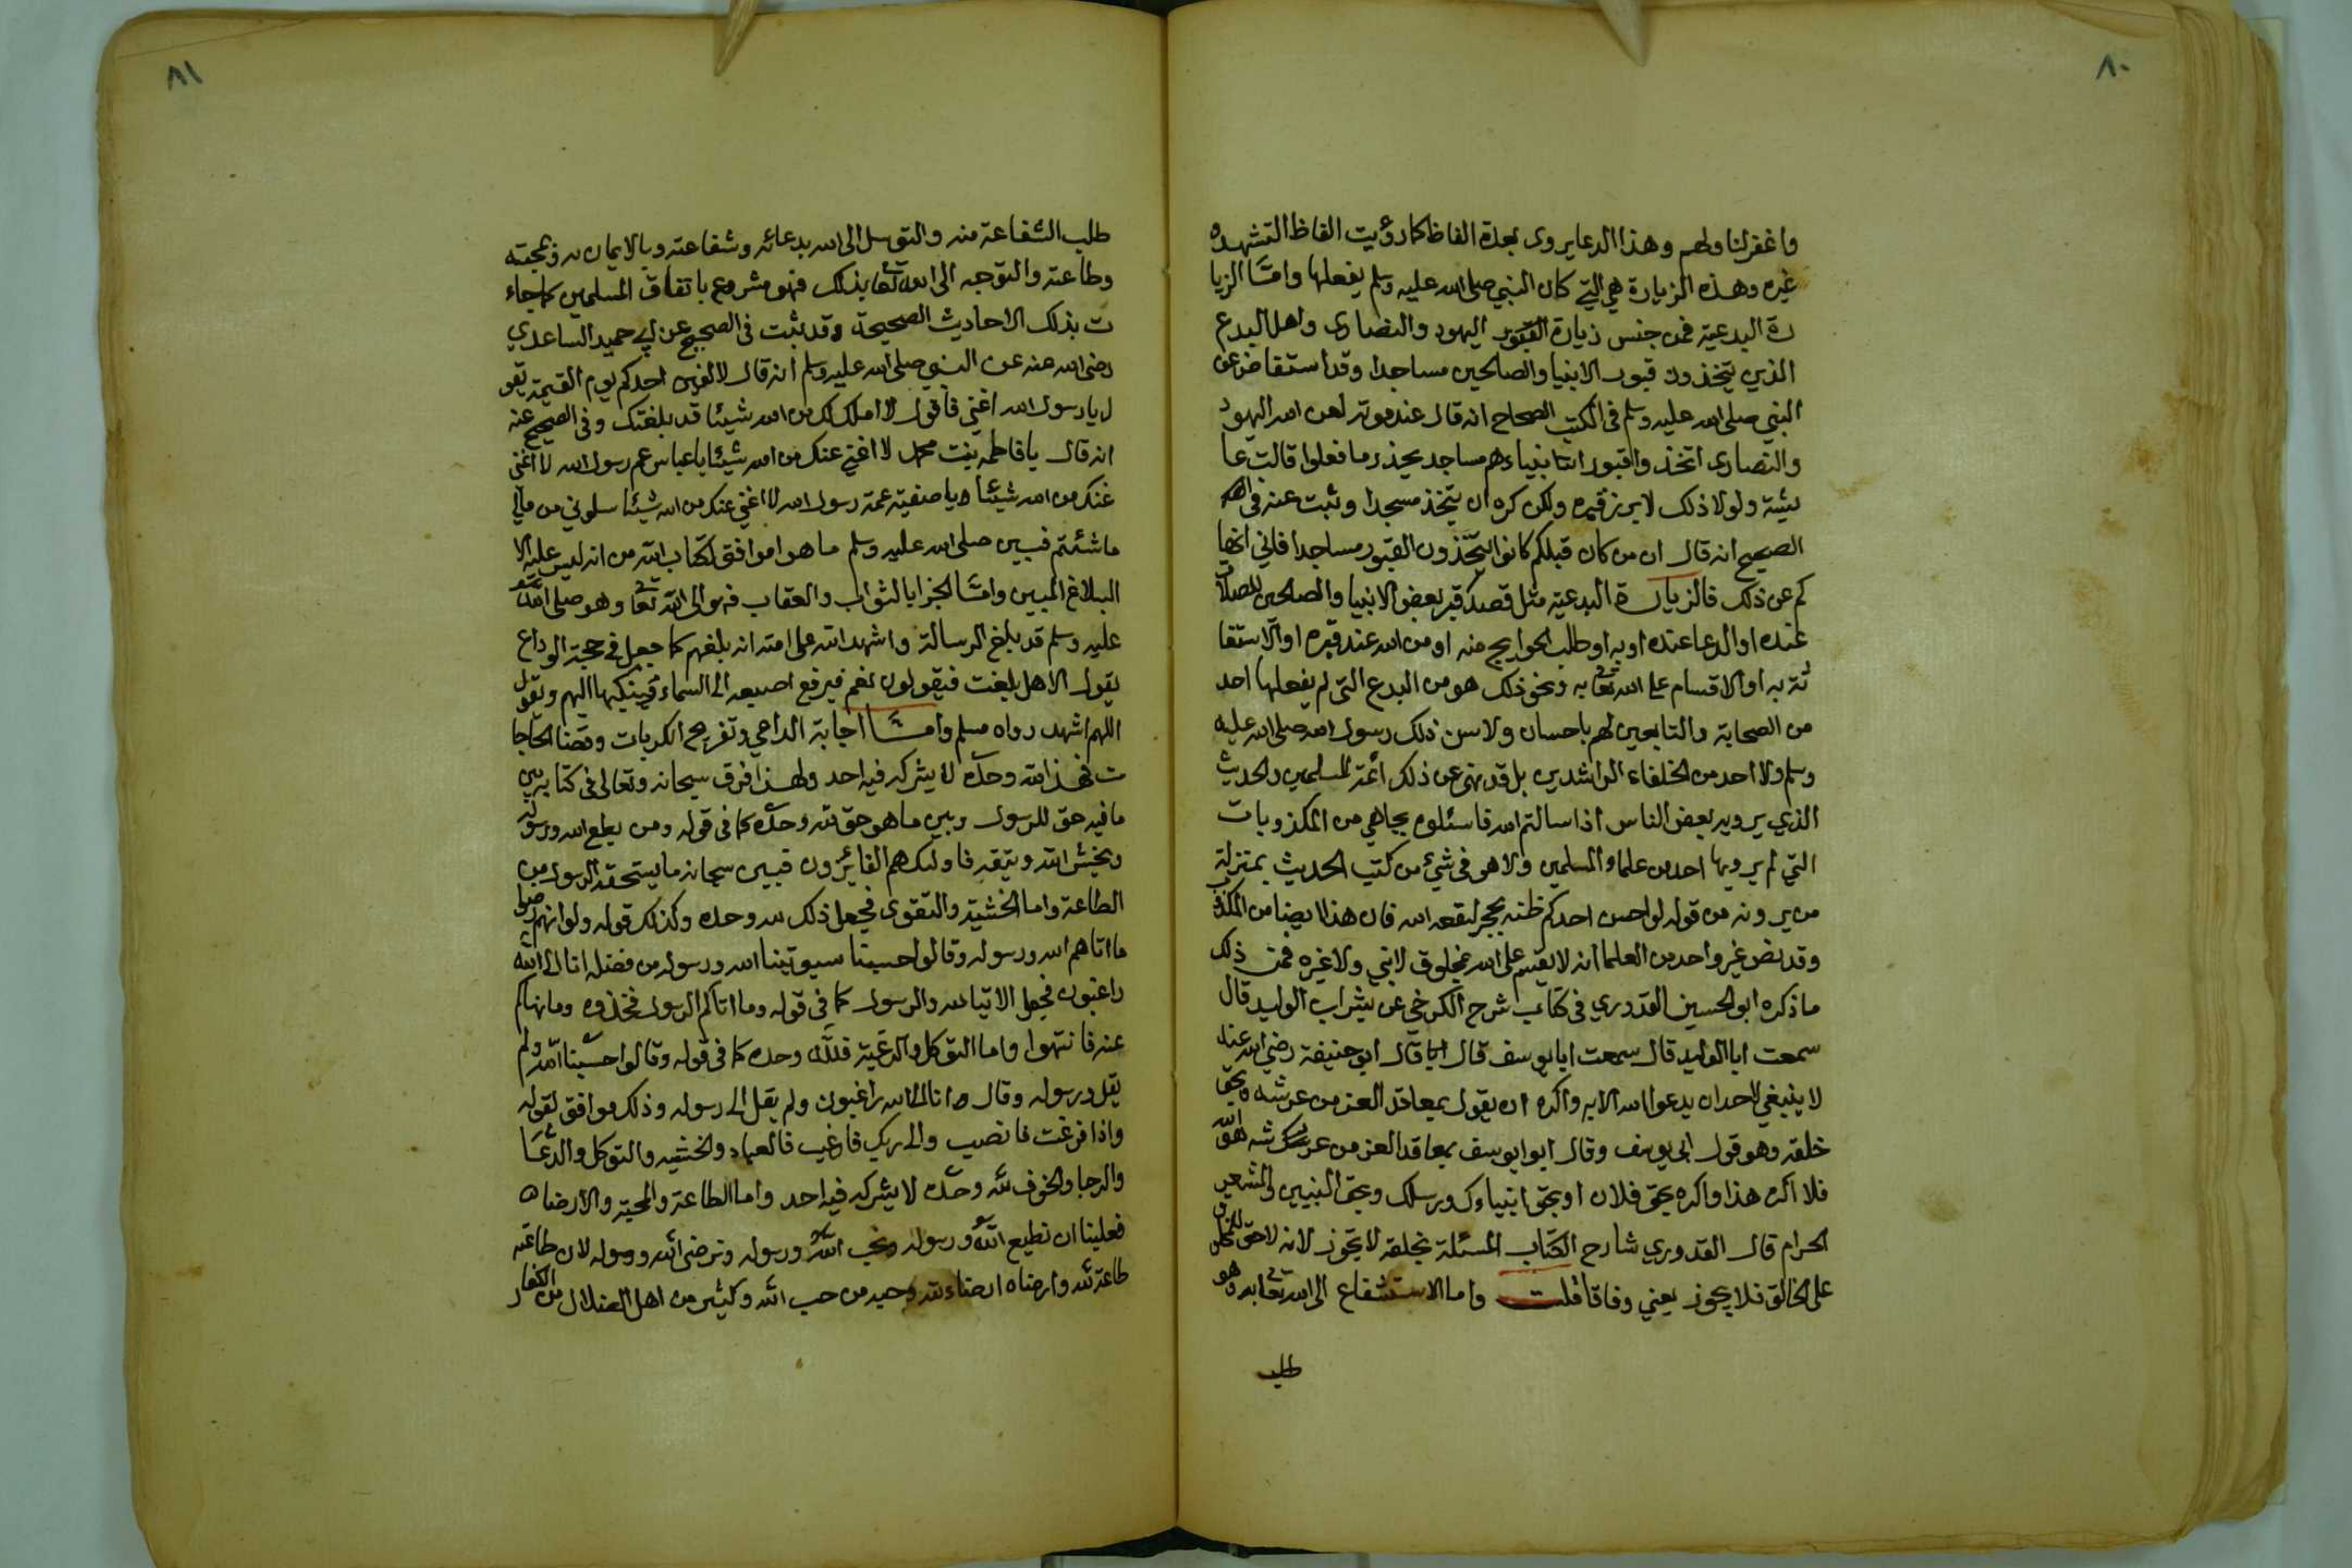 ٨٠
واغفر لنا ولهم وهذا الدعا يروى بعدة الفاظ كما رؤيت الفاظ التشهد و
غيره وهذه الزيارة هي التي كان النبي صلى الله عليه وسلم يفعلها وامّا الزيا
رة البدعية فمن جنس زيارة القبور اليهود والنصارى واهل البدع
الذين يتخذون قبور الانبيا والصالحين مساجدا وقد استفاض عن
النبي صلى الله عليه وسلم في الكتب الصحاح انه قال عند موته لعن الله اليهود
والنصارى اتخذوا قبور انبياءهم مساجد يحذر ما فعلوا قالت عا
يشة ولولا ذلك لابرز قبره ولكن كره ان يتخذ مسجدا وثبت عنه في
الصحيح انه قال ان من كان قبلكم كانوا يتخذون القبور مساجدا فاني انها
كم عن ذلك فالزيارة البدعية مثل قصد قبر بعض الانبيا والصالحين للصلاة
عنده او الدعا عنده او به او طلب الحوايج منه او من الله عند قبره او الاستغا
ثة به او الاقسام على الله تعالى به ونحو ذلك هو من البدع التي لم يفعلها احد
من الصحابة والتابعين لهم باحسان ولا سن ذلك رسول الله صلى الله عليه
وسلم ولا احد من الخلفاء الراشدين بل قد نهى عن ذلك ائمة المسلمين والحديث
الذي يرويه بعض الناس اذا سالتم الله فاسئلوه بجاهي من المكذوبات
التي لم يرويها احد من علماء المسلمين ولا هو في شيء من كتب الحديث بمنزلة
من يرونه من قوله لو احسن احدكم ظنه بحجر لنفعه الله فان هذا ايضا من المكذوب
وقد نص غير واحد من العلما انه لا يقسم على الله بمخلوق لا نبي ولا غيره فمن ذلك
ما ذكره ابو الحسين القدوري في كتاب شرح الكرخي عن بشر اب الوليد قال
سمعت ابا الوليد قال سمعت ابا يوسف قال قال ابو حنيفة رضي الله عنه
لا ينبغي لاحد ان يدعوا الله الا به واكره ان يقول بمعاقد العز من عرشه وبحق
خلقه وهو قول ابي يوسف وقال ابو ايوسف بمعاقد العز من عرشه هو الله
فلا اكره هذا واكره بحق فلان او بحق انبياءك ورسلك وبحق النبيين والمشعر
الحرام قال القدوري شارح الكتاب المسئلة بخلقه لا تجوز لانه لا حق للمخلوق
على الخالق فلا يجوز يعني وفاقا قلت واما الاستشفاع الى الله تعالى به وهو
طلب
٨١
طلب الشفاعة منه والتوسل الى الله بدعائه وشفاعته وبالايمان به ومحبته
وطاعته والتوجه الى الله تعالى بذلك فهو مشروع باتفاق المسلمين كما جاء
ت بذلك الاحاديث الصحيحة وقد ثبت في الصحيح عن ابي حميد الساعدي
رضي الله عنه عن النبي صلى الله عليه وسلم انه قال لا الفين احدكم يوم القيمة يقو
ل يا رسول الله اغثني فاقول لا املك لك من الله شيئا قد بلغتك وفي الصحيح عنه
انه قال يا فاطمه بنت محمد لا اغني عنك من الله شيئا يا عباس عم رسول الله لا اغني
عنك من الله شيئا ويا صفية عمة رسول الله لا اغني عنك من الله شيئا سلوني من مالي
ما شئتم فبين صلى الله عليه وسلم ما هو امر موافق لكتاب الله من انه ليس عليه الا
البلاغ المبين وامّا الجزا بالثواب والعقاب فهو الى الله تعالى وهو صلى الله
عليه وسلم قد بلغ الرسالة واشهد الله على امته انه بلغهم كما جعل في حجة الوداع
يقول الا هل بلغت فيقولون نعم فيرفع اصبعه الى السماء وينكبها اليهم ويقول
اللهم اشهد رواه مسلم وامّا اجابة الداعي وتفريج الكربات وقضا الحاجا
ت فهذا لله وحده لا يشركه فيه احد ولهذا فرق سبحانه وتعالى في كتابه بين
ما فيه حق للرسول وبين ما هو حق لله وحده كما في قوله ومن يطع الله ورسوله
ويخش الله ويتقه فاولئك هم الفائزون فبين سبحانه ما يستحقه الرسول من
الطاعة واما الخشية والتقوى فجعل ذلك لله وحده وكذلك قوله ولو انهم رضوا
ما اتاهم الله ورسوله وقالوا حسبنا سيوتينا الله ورسوله من فضله انا الى الله
راغبون فجعل الايتا لله والرسول كما في قوله وما اتاكم الرسول فخذوه وما نهاكم
عنه فانتهوا واما التوكل والرغبة فلله وحده كما في قوله وقالوا حسبنا الله ولم
يقل ورسوله وقال وانا الى الله راغبون ولم يقل الى رسوله وذلك موافق لقوله
واذا فرغت فانصب والى ربك فارغب فالعباد والخشيه والتوكل والدعا
والرجا والخوف لله وحده لا يشركه فيه احد واما الطاعة والمحبة والارضاه
فعلينا ان نطيع الله ورسوله ونحب الله ورسوله ونرضى الله ورسوله لان طاعته
طاعة لله وارضاه ارضاء لله وحبه من حب الله وكثير من اهل الضلال من الكفار